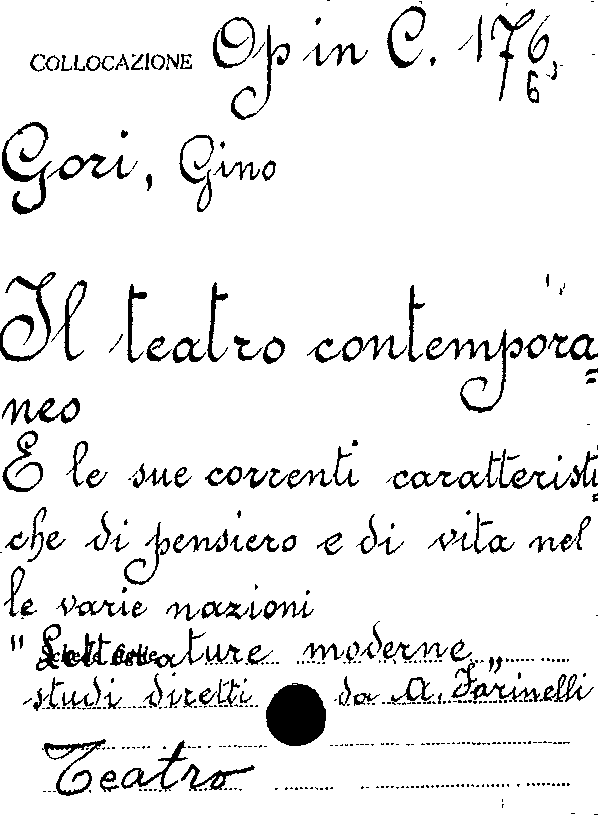 COLLOCAZIONE Op in C. 176,
6
Gori, Gino
Il teatro contempora=
neo
E le sue correnti caratteristi=
che di pensiero e di vita nel
le varie nazioni
" Letterature moderne "
studi diretti da A. Farinelli
Teatro